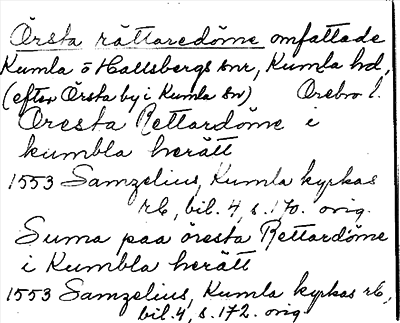 Örsta rättaredöme omfattade
Kumla o Hallsbergs snr, Kumla hd,
(efter Örsta by i Kumla sn) Örebro l.
Öresta Rettardöme i
kumbla herätt
1553 Samzelius, Kumla kyrkas
rb, bil. 4, s. 170. orig.
Suma paa öresta Rettardöme
i Kumbla herätt
1553 Samzelius, Kumla kyrkas rb,
bil. 4, s. 172. orig.